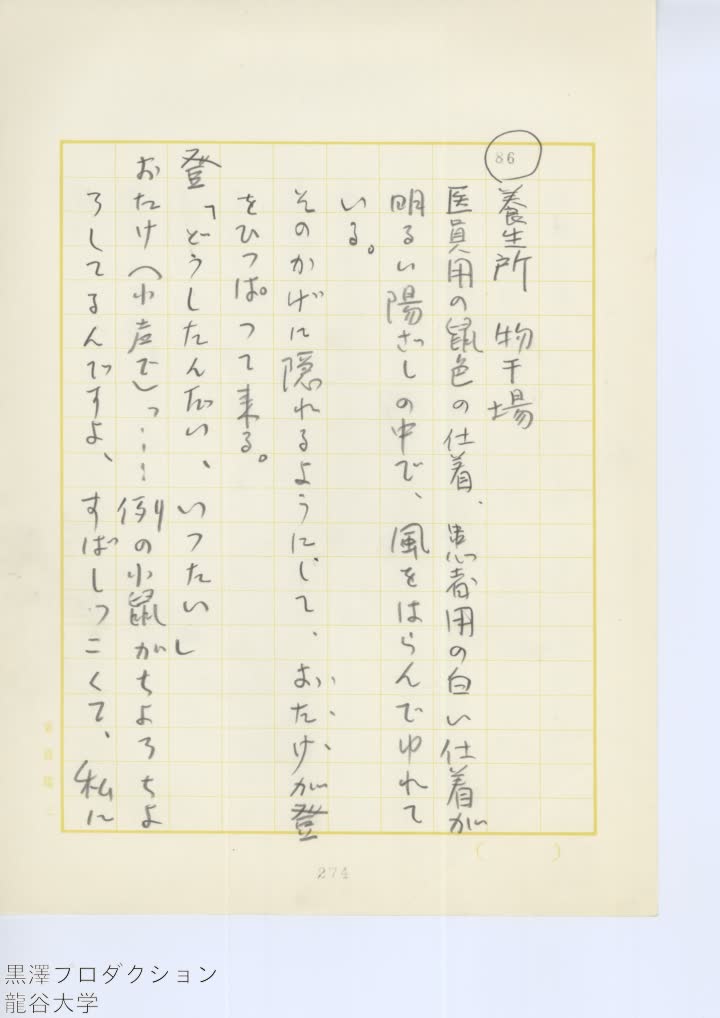 86
養生所　物干場
医員用の鼠色の仕着、患者用の白い仕着が
明るい陽ざしの中で、風をはらんでゆれて
いる。
そのかげに隠れるようにして、おたけが登
をひっぱって来る。
登「どうしたんだい、いつたい」
おたけ（小声で）「……例の小鼠がちよろちよ
ろしてるんですよ、すばしつこくて、私に
274
黒澤プロダクション
龍谷大学